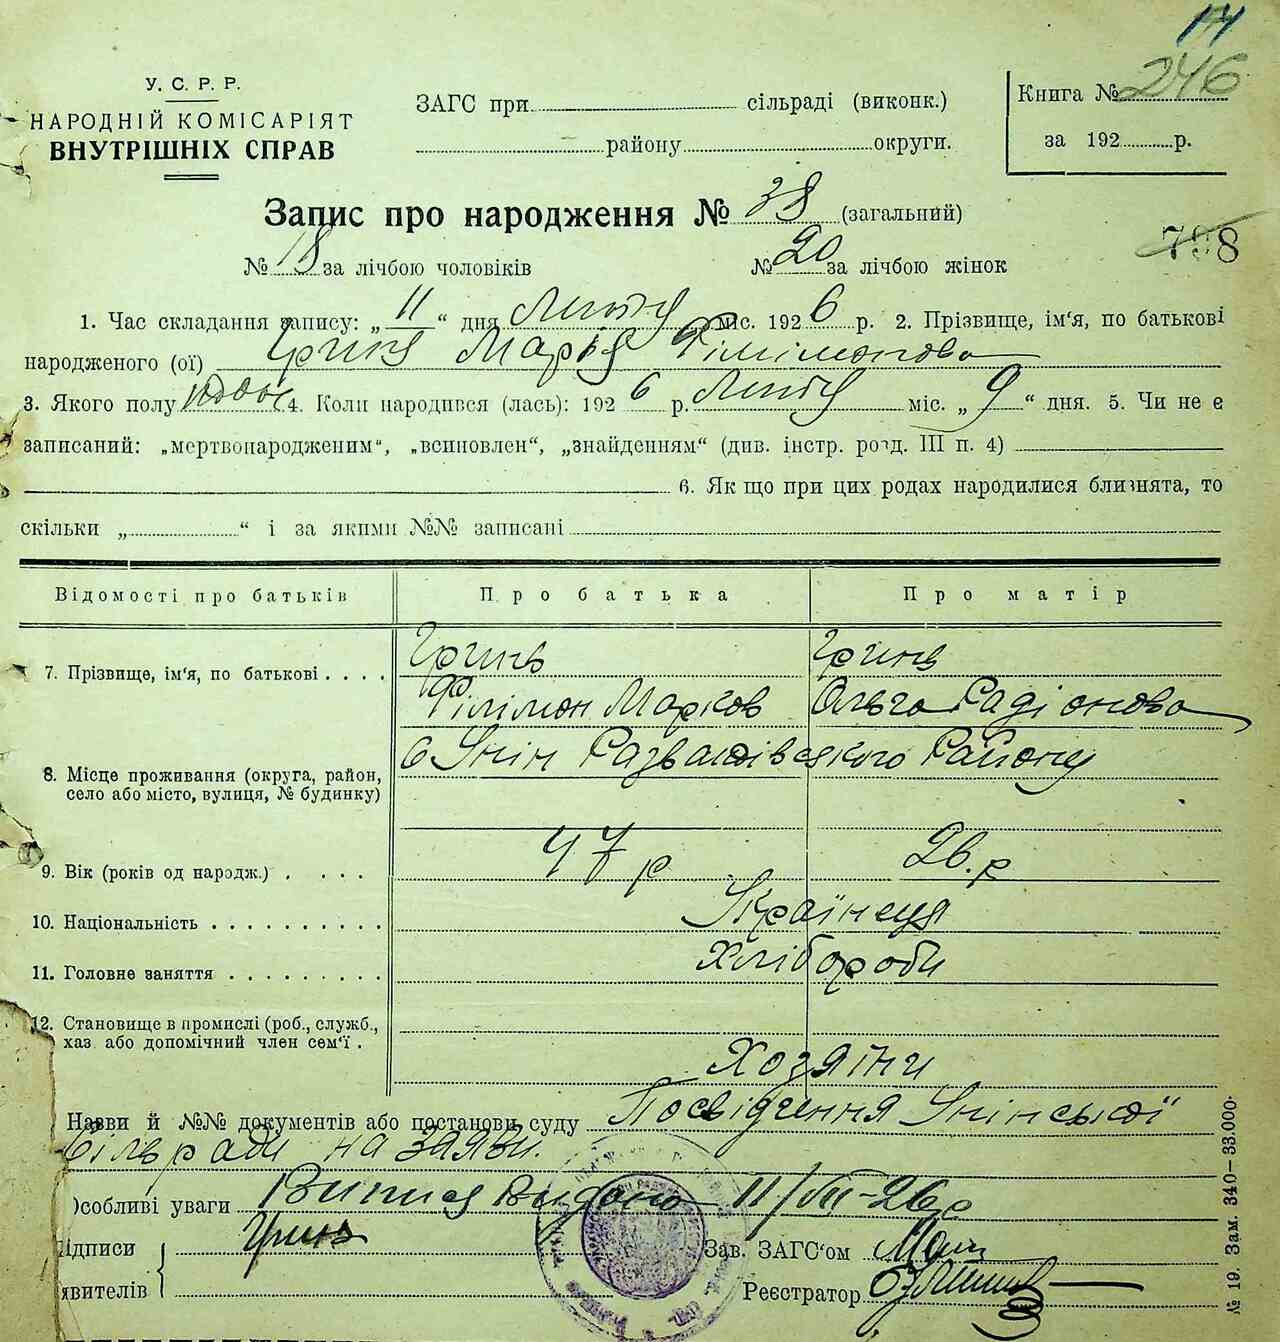 14
246
У. С. Р. Р.
НАРОДНІЙ КОМІСАРІЯТ
ВНУТРІШНІХ СПРАВ
ЗАГС при сільраді (виконк.)
району округи.
Книга №
за 192 р.
Запис про народження № 38 (загальний)
№ 18 за лічбою чоловіків № 20 за лічбою жінок
798
1. Час складання запису: „ 11 “ дня міс. 192 6 р. 2. Прізвище, ім'я, по батькові
народженого (ої) Гриня Марія Філімонова
3. Якого полу 4. Коли народився (лась): 192 6 р. міс. „ 9 “ дня. 5. Чи не є
записаний: „мертвонародженим“, „всиновлен“, „знайденням“ (див. інстр. розд. III п. 4)
6. Як що при цих родах народилися близнята, то
скільки „ “ і за якими №№ записані
Відомості про батьків Про батька Про матір
7. Прізвище, ім'я, по батькові Гринь Гринь
Філімон Марков Ольга Радіонова
8. Місце проживання (округа, район,
село або місто, вулиця, № будинку)
с Унін Розважівського Району
9. Вік (років од народж.) 47 р 26 р
10. Національність Українця
11. Головне заняття Хлібороби
12. Становище в промислі (роб., служб.,
хаз. або допомічний член сем'ї.
Хозяїни
Назви й №№ документів або постанови суду Посвідчення Унінської
Сільради на заяви.
Особливі уваги Випись Видано 11/VII-26 р
Підписи Гринь Зав. ЗАГС'ом
явителів Реєстратор
№ 19. Зам. 340–33.000.